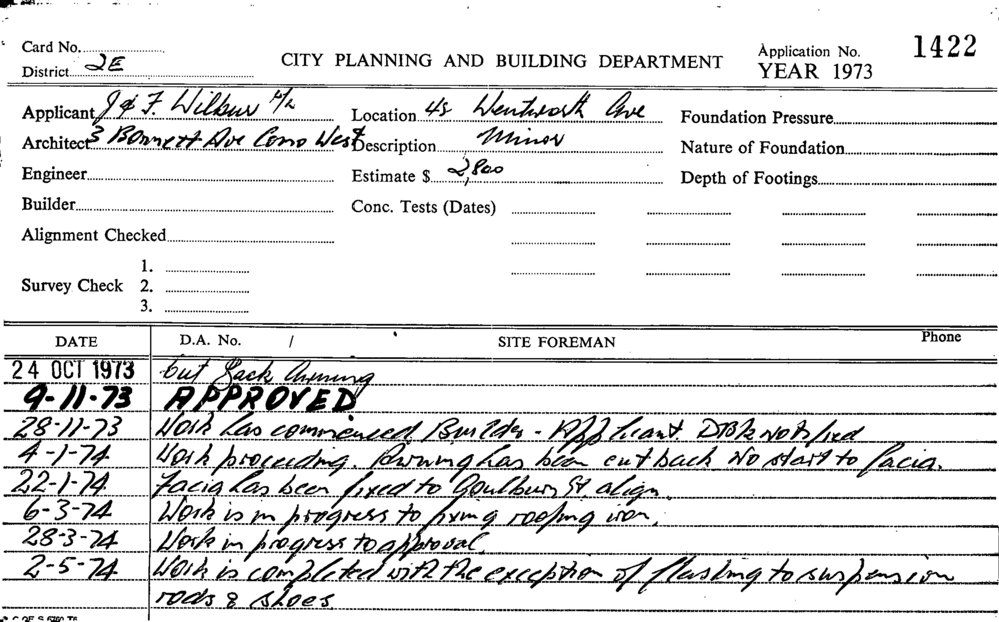 Card No.
District 2E
CITY PLANNING AND BUILDING DEPARTMENT
Application No. 1422
YEAR 1973
Applicant J & F. Wilbur P/L
Location 48 Wentworth Ave
Foundation Pressure
Architect 3 Bonnett Ave Conc West
Description Minor
Nature of Foundation
Engineer
Estimate $ 2,800
Depth of Footings
Builder
Conc. Tests (Dates)
Alignment Checked
Survey Check 1.
2.
3.
DATE D.A. No. / SITE FOREMAN Phone
24 OCT 1973 Cut Back Awning
9-11-73 APPROVED
28-11-73 Work has commenced. Builder - Applicant. notified
4-1-74 Work proceeding. Awning has been cut back No start to facia.
22-1-74 Facia has been fixed to Goulburn St. align.
6-3-74 Work is in progress to fixing roofing iron.
28-3-74 Work in progress to approval.
2-5-74 Work is completed with the exception of flashing to suspension
rods & shoes